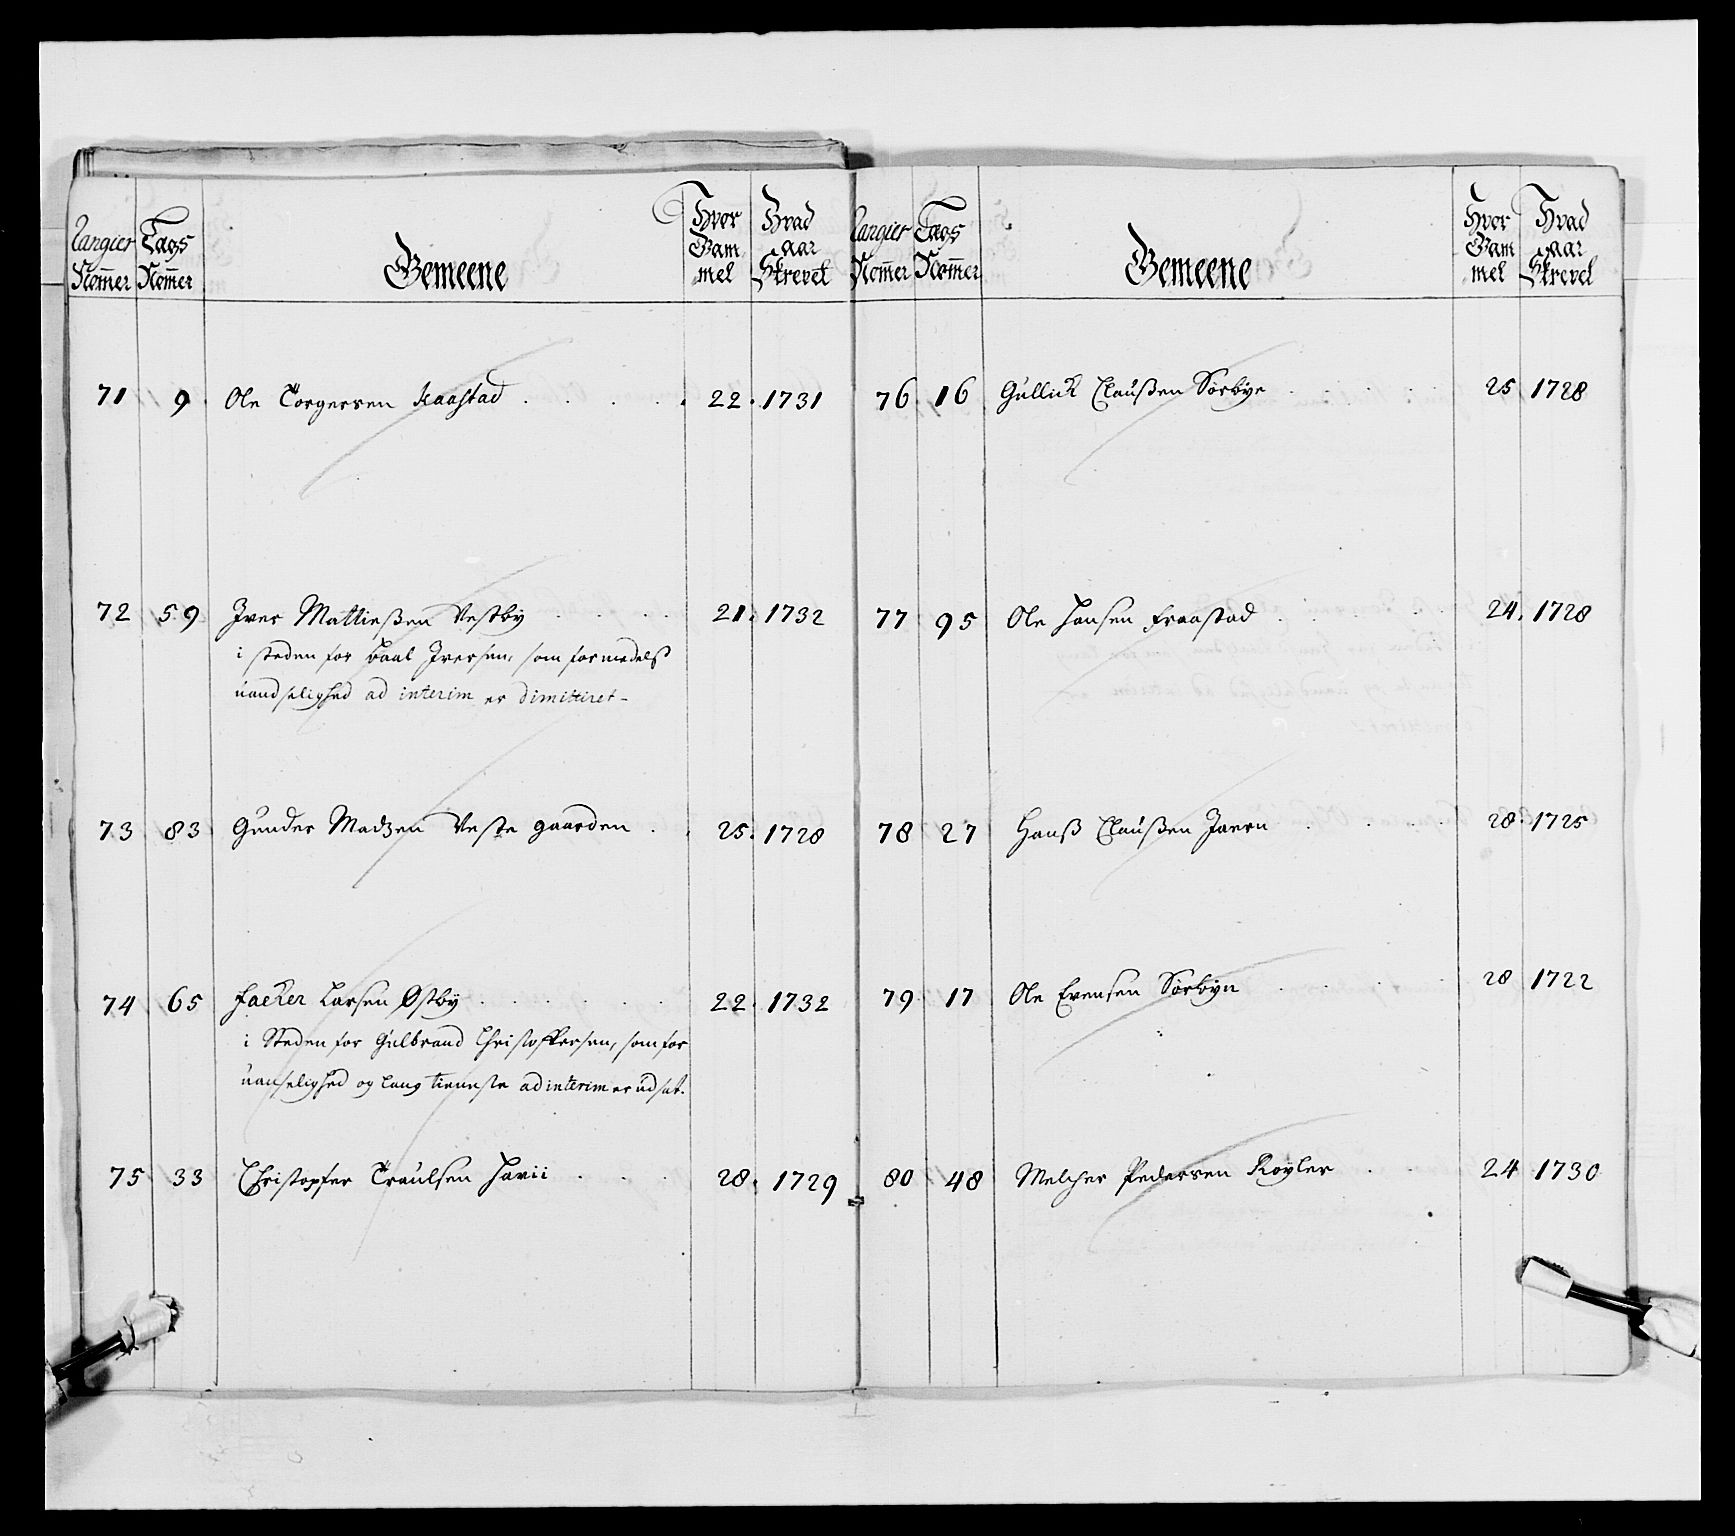 Rangier Nom̄er
Tags Nom̄er
Gemeene
Hvor Gam mel
Hvad aar Skrevet
71 9 Ole Torgersen Kaastad 22. 1731
72 59 Iver Mattießen Vestby 21. 1732
i steden for Paal Iversen, som formedelst
uandselighed ad interim er dimittiret-
73 83 Gunder Madzen Veste gaarden 25. 1728
74 65 Facker Larsen Østby 22. 1732
i Steden for Gulbrand Christoffersen, som for
uanselighed og lang tieneste ad interim er udsat.
75 33 Christopfer Traulsen Havii 28. 1729
Rangier Nom̄er
Tags Nom̄er
Gemeene
Hvor Gam mel
Hvad aar Skrevet
76 16 Gullick Claußen Sørbye 25 1728
77 95 Ole Hansen Fraastad 24. 1728
78 27 Hanß Claußen Javrn 28. 1725
79 17 Ole Evensen Sørbyn 28 1722
80 48 Melcher Pedersen Royler 24 1730